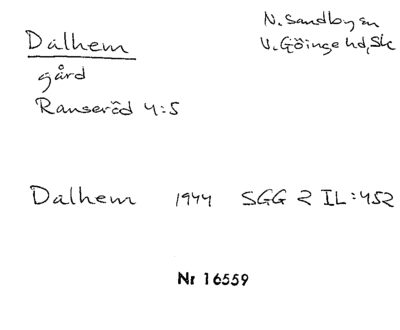 Dalhem
N. Sandby sn
V. Göinge hd, Sk
gård
Ranseröd 4:5
Dalhem 1944 SGG 2 IL:452
Nr 16559